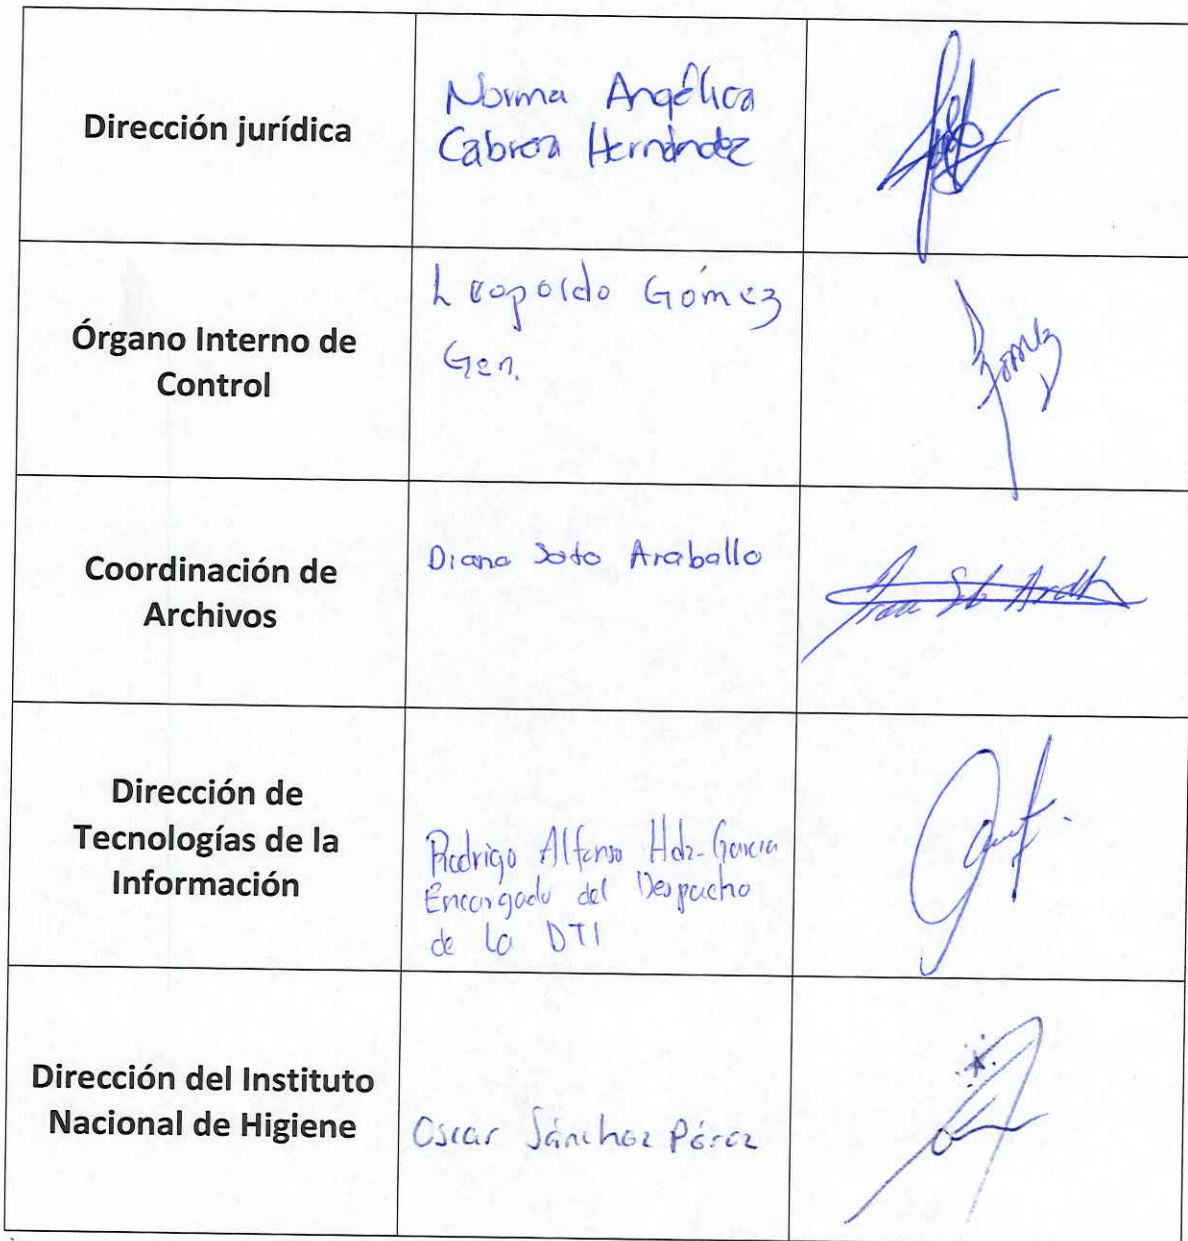 Dirección jurídica
Norma Angélica
Cabrera Hernández
Órgano Interno de
Control
Leopoldo Gómez
Gen.
Coordinación de
Archivos
Diana Soto Araballo
Dirección de
Tecnologías de la
Información
Rodrigo Alfonso Hdz-García
Encargado del Despacho
de la DTI
Dirección del Instituto
Nacional de Higiene
Oscar Sánchez Pérez